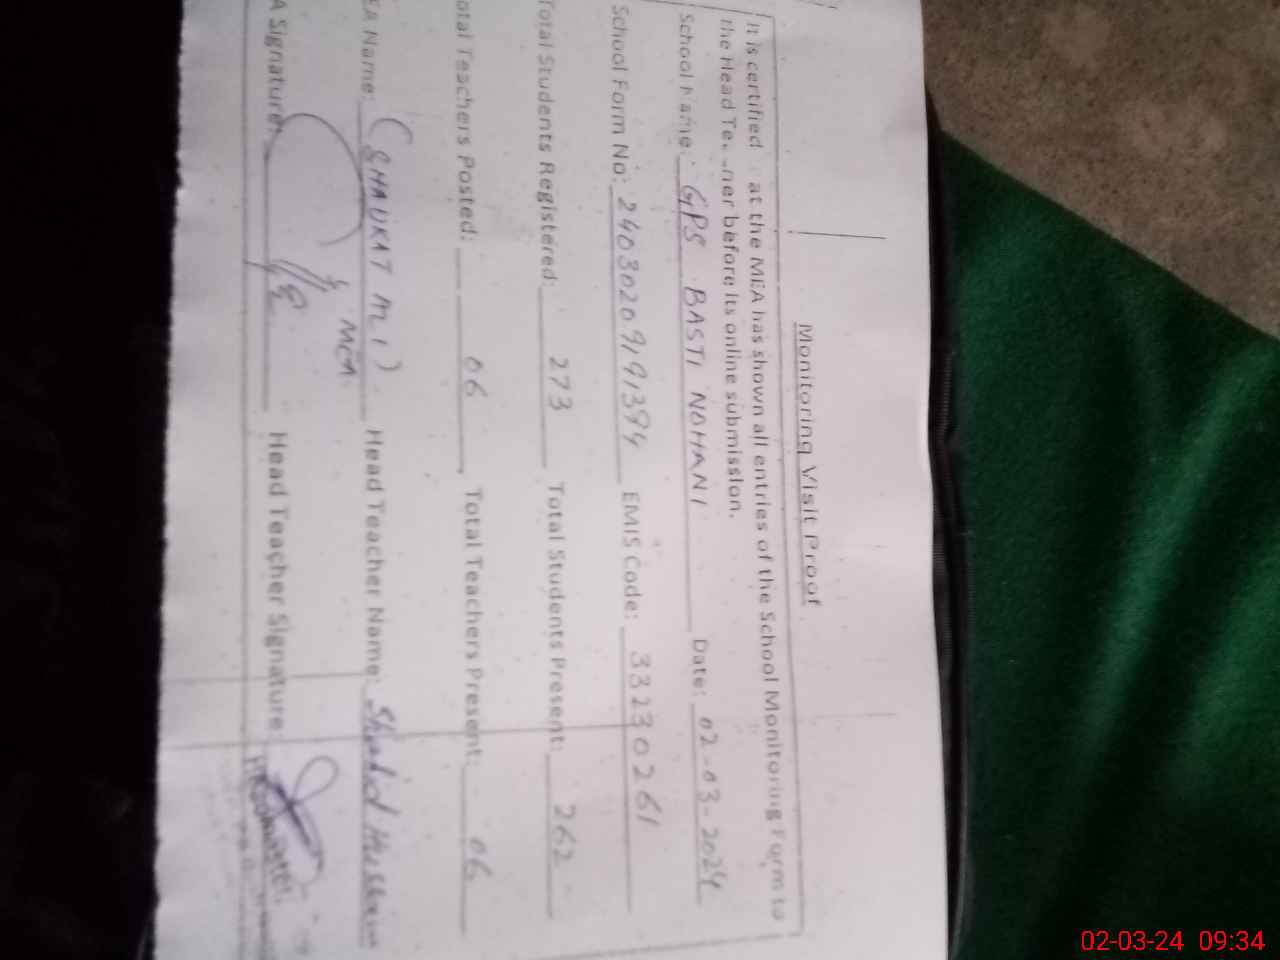 Monitoring Visit Proof
It is certified at the MEA has shown all entries of the School Monitoring Form to
the Head Te. .ner before its online submission.
School Name: GPS BASTI NOHANI Date: 02-03-2024
School Form No: 24030209191394 EMIS Code: 33230261
Total Students Registered: 273 Total Students Present: 262
otal Teachers Posted: 06 Total Teachers Present: 06
EA Name: (SHAUKAT ALI) Head Teacher Name: Shahid Hussain
MEA
A Signature: Head Teacher Signature:
Headmaster
02-03-24 09:34